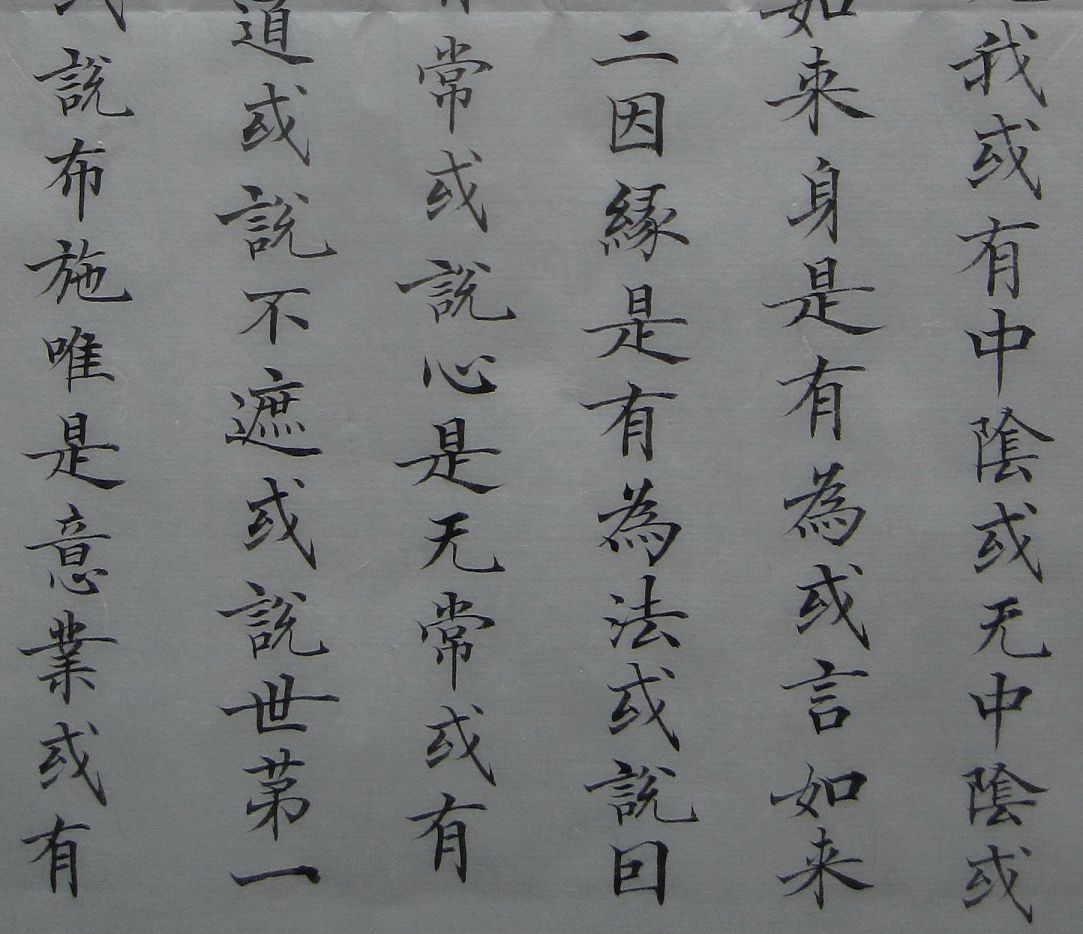 我或有中陰或无中陰或
如来身是有為或言如来
二因縁是有為法或說回
常或說心是无常或有
道或說不遮或說世苐一
說布施唯是意業或有